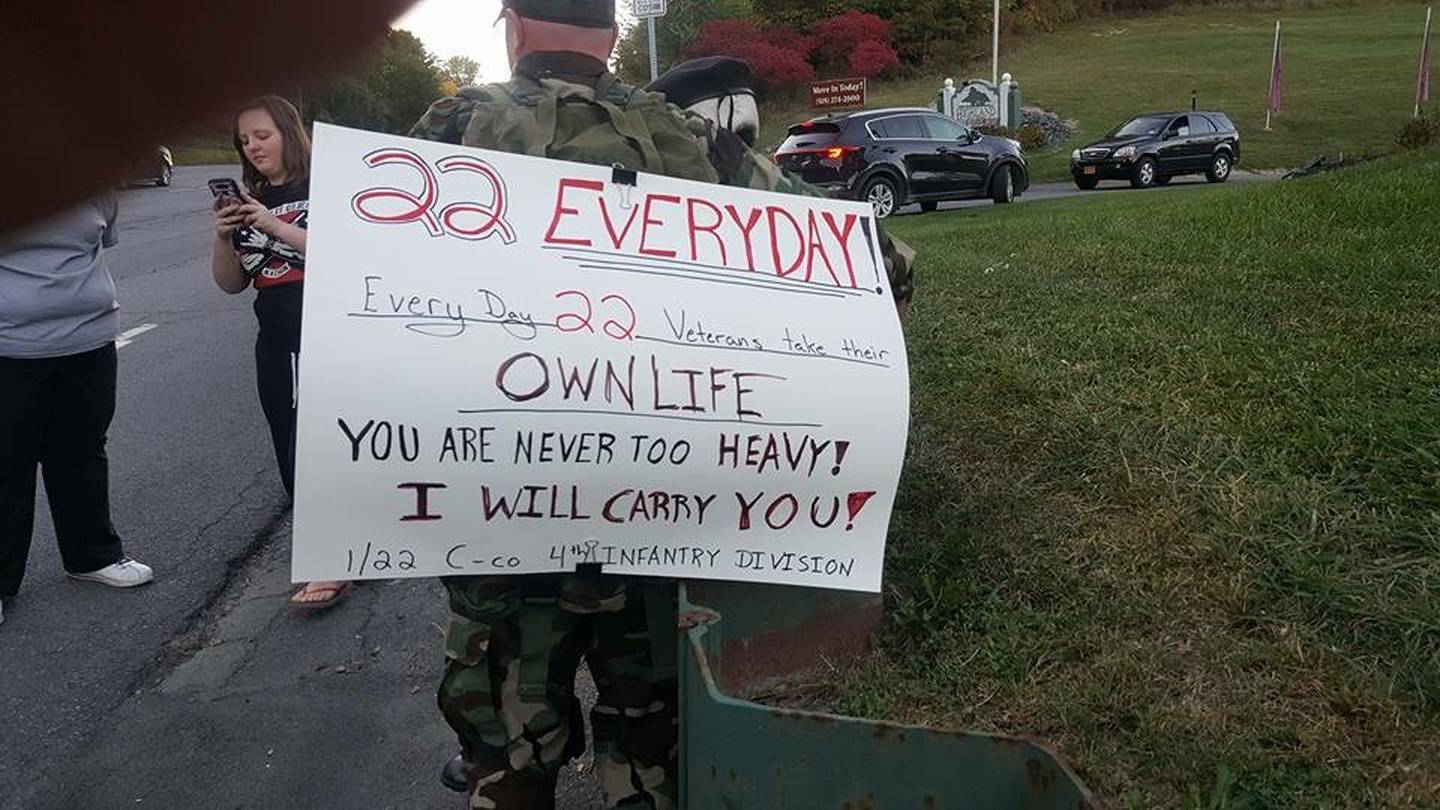 22 EVERYDAY!
Every Day 22 Veterans take their
OWN LIFE
YOU ARE NEVER TOO HEAVY!
I WILL CARRY YOU!
1/22 C-co 4th INFANTRY DIVISION
Move In Today!